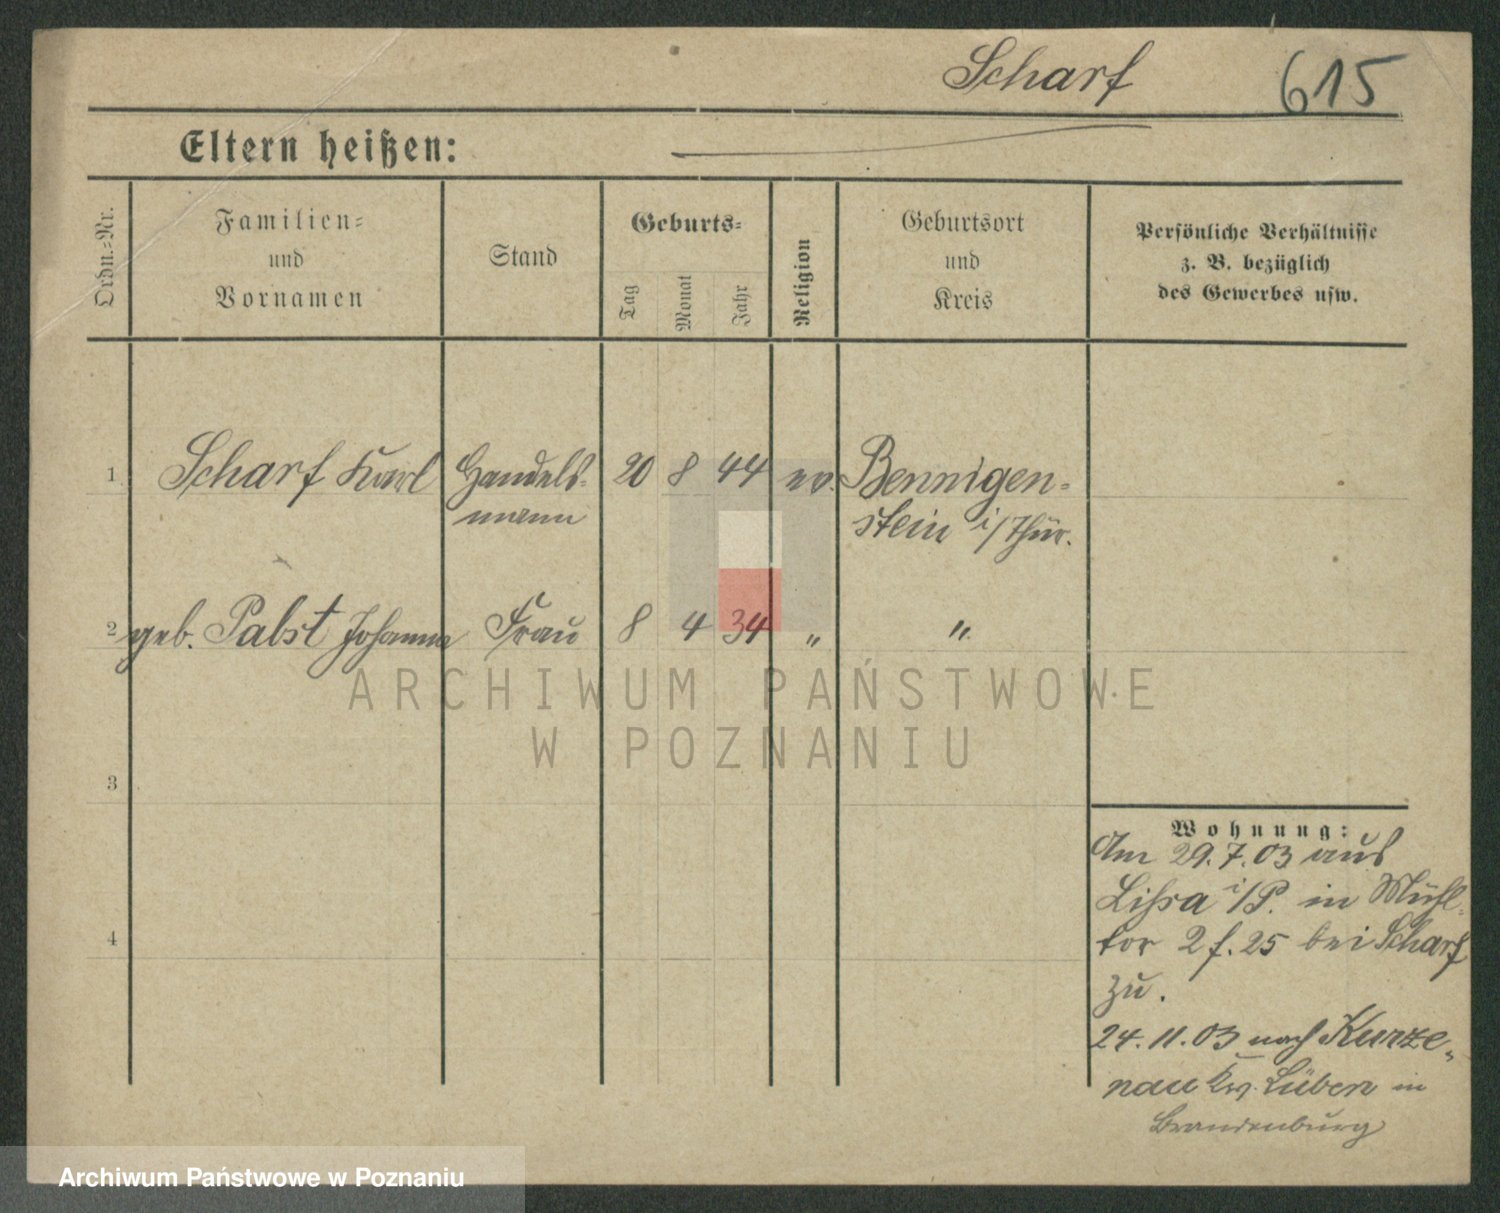 Scharf 615
Eltern heißen:
Ordn.-Nr.
Familien-
und
Vornamen
Stand
Geburts-
Tag
Monat
Jahr
Religion
Geburtsort
und
Kreis
Persönliche Verhältnisse
z. B. bezüglich
des Gewerbes usw.
1 Scharf Karl Handels- 20 8 44 ev. Bennigen-
mann stein i/Thür.
2 geb. Pabst Johanna Frau 8 4 34 " "
ARCHIWUM PAŃSTWOWE
W POZNANIU
3
4
Wohnung:
Am 29.7.03 aus
Lissa i/P. in Mühl-
tor 2 f. 25 bei Scharf
zu.
24.11.03 nach Kurze-
nau Krs. Lüben in
Brandenburg
Archiwum Państwowe w Poznaniu